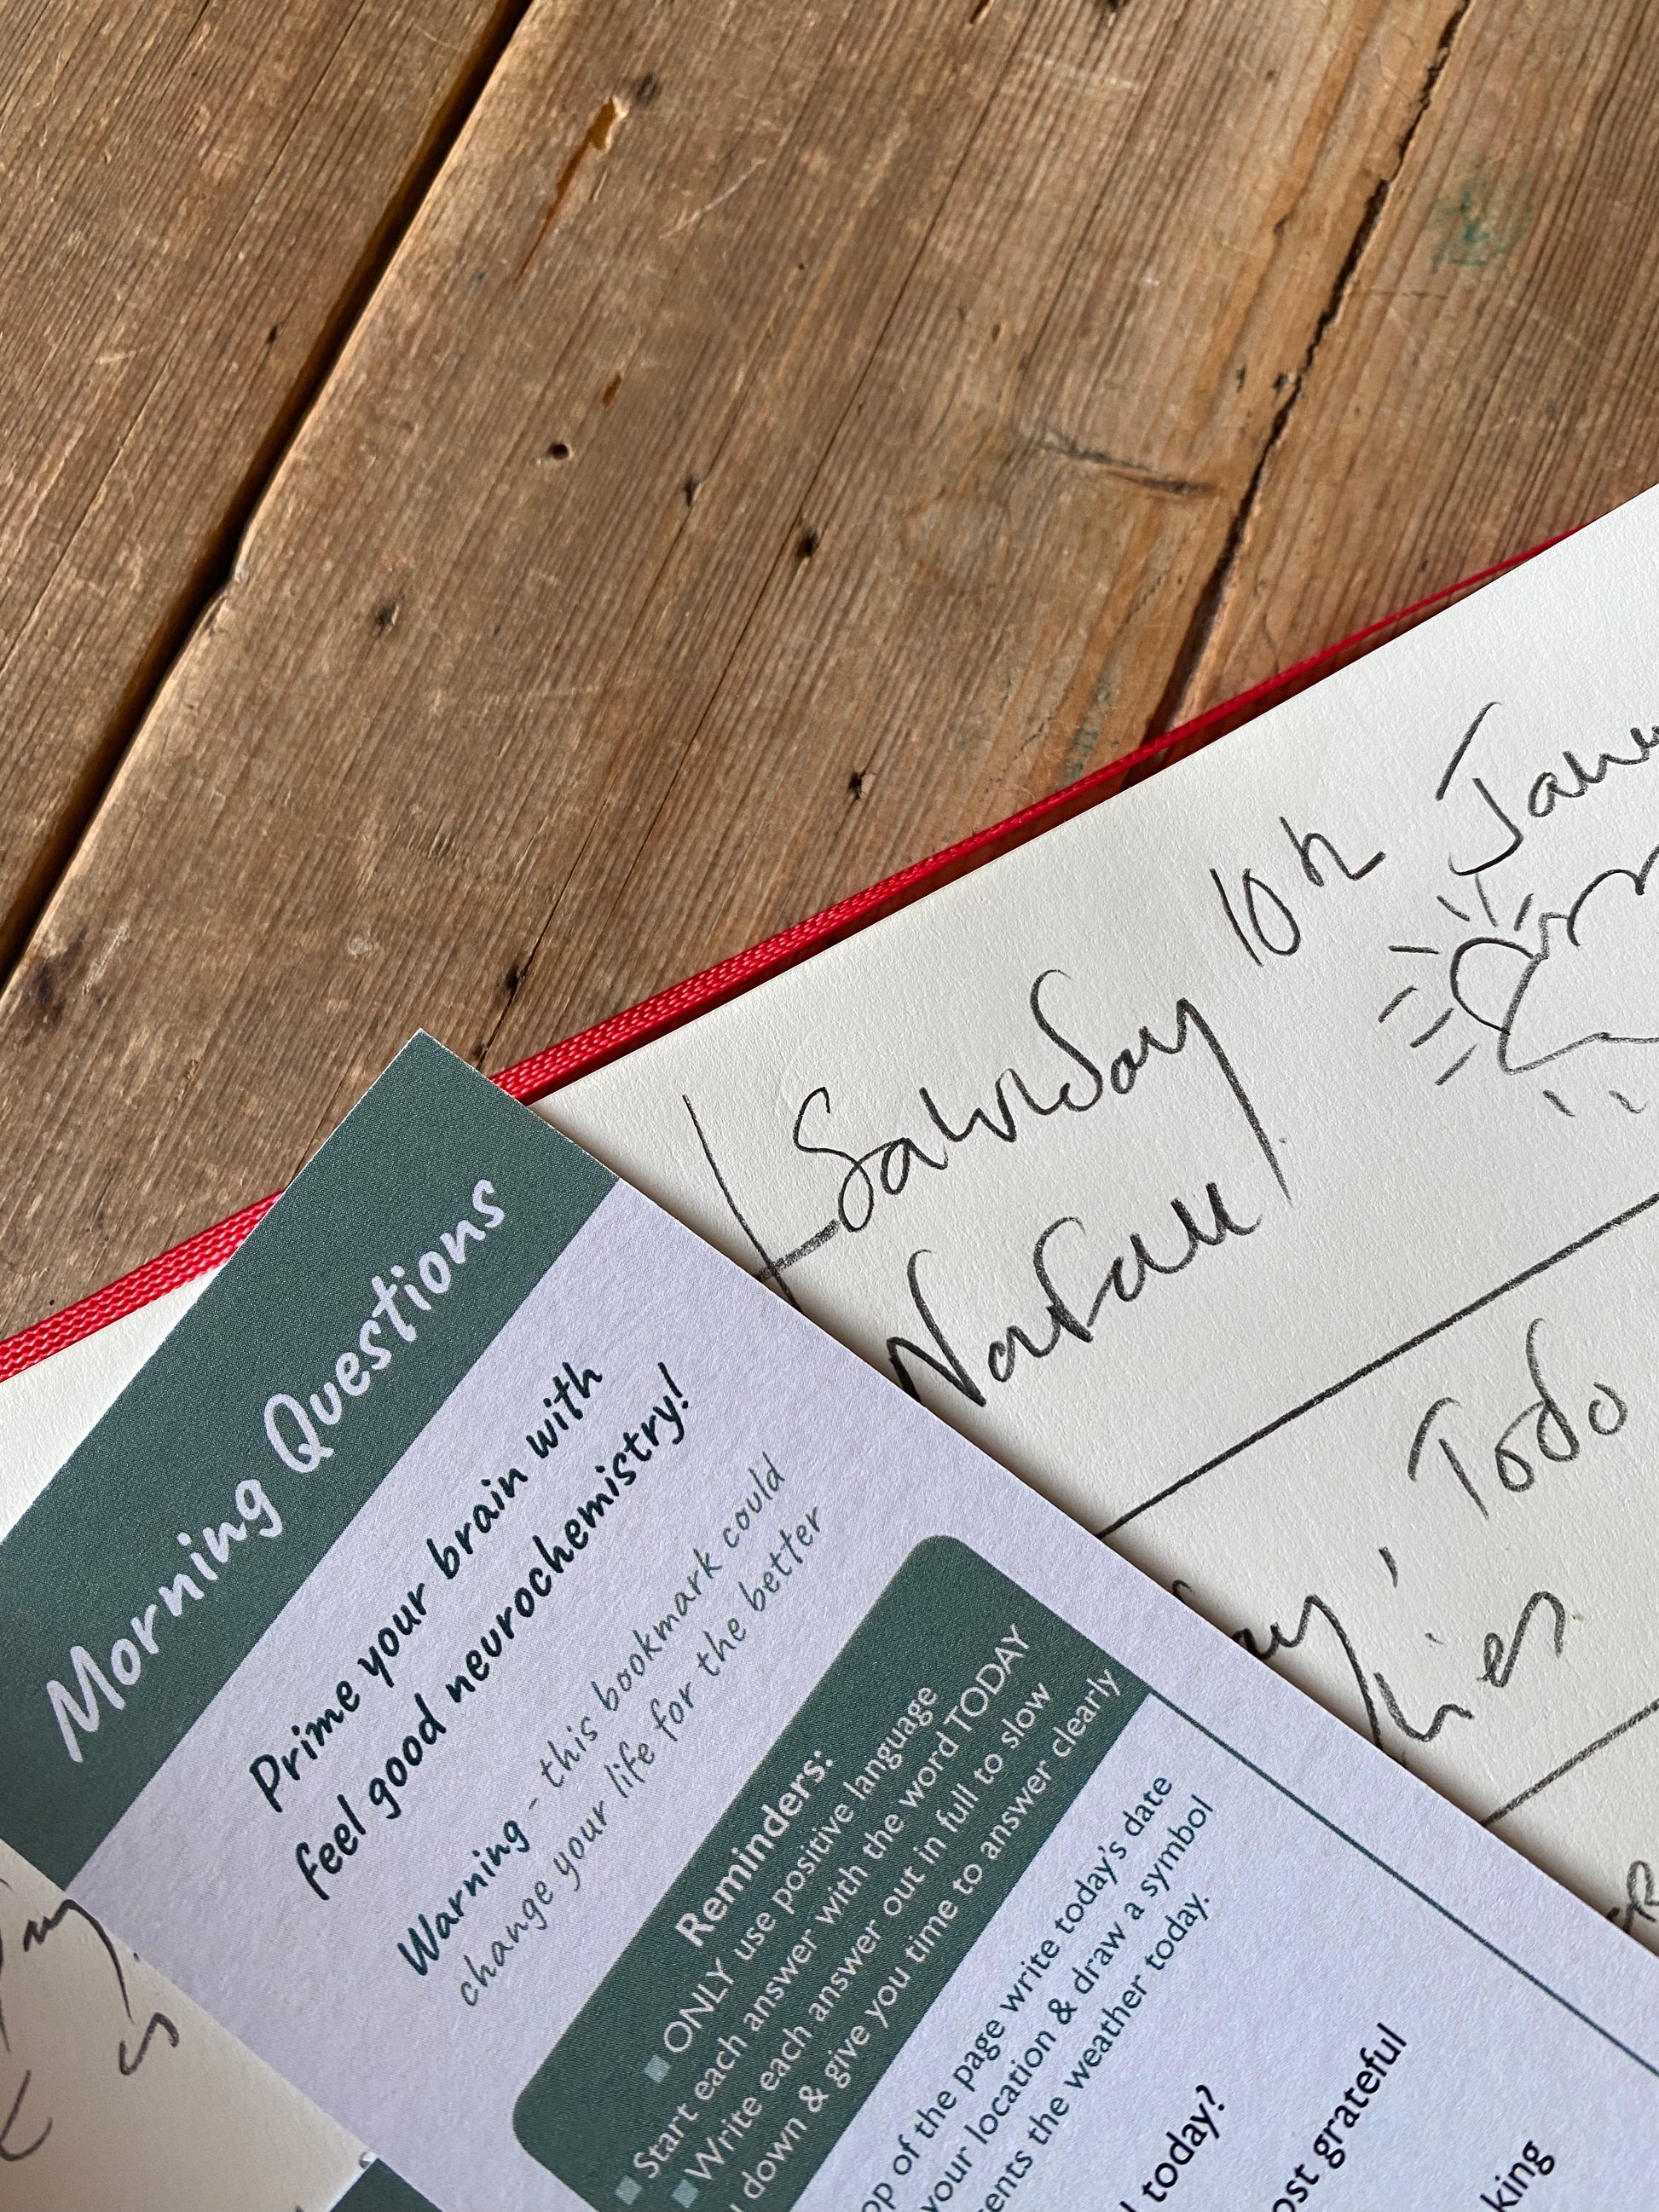 Morning Questions
Prime your brain with
feel good neurochemistry!
Warning - this bookmark could
change your life for the better
Reminders:
ONLY use positive language
Start each answer with the word TODAY
Write each answer out in full to slow
down & give you time to answer clearly
of the page write today's date
your location & draw a symbol
the weather today.
today?
grateful
Saturday 10th
Todo